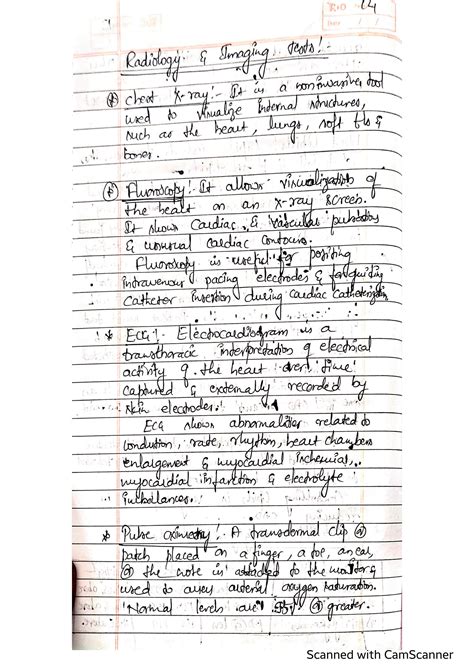 14
Date
Radiology & Imaging tests!-
* chest X-ray!- It is a noninvasive tool
used to visualize internal structures,
such as the heart, lungs, soft &
bones.
* Fluoroscopy!- It allows visualization of
the heart on an X-ray screen.
It shows cardiac & vascular pulsations
& unusual cardiac contours.
Fluroskopy is useful for positing
intravenous pacing electrodes & for guiding
catheter insertion during cardiac catheterization
* ECG!- Electrocardiogram is a
transthoracic interpretation of electrical
activity of the heart over time
captured & externally recorded by
skin electrodes.
ECG shows abnormalities related to
conduction, rate, rhythm, heart chambers
enlargement & myocardial ischemias,
myocardial infarction & electrolyte
imbalances.
* Pulse oximetry!- A transdermal clip or
patch placed on a finger, a toe, an ear,
or the nose is attached to the monitor &
used to assess arterial oxygen saturation.
Normal levels are or greater.
Scanned with CamScanner